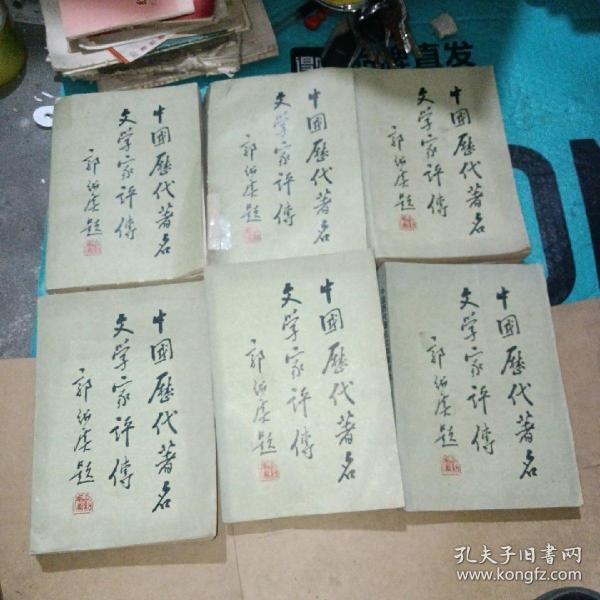 中國歷代著名
文学家评傳
郭绍虞题
中國歷代著名
文学家评傳
郭绍虞题
中國歷代著名
文学家评傳
郭绍虞题
中國歷代著名
文学家评傳
郭绍虞题
中國歷代著名
文学家评傳
郭绍虞题
中國歷代著名
文学家评傳
郭绍虞题
直发
孔夫子旧书网
www.kongfz.com